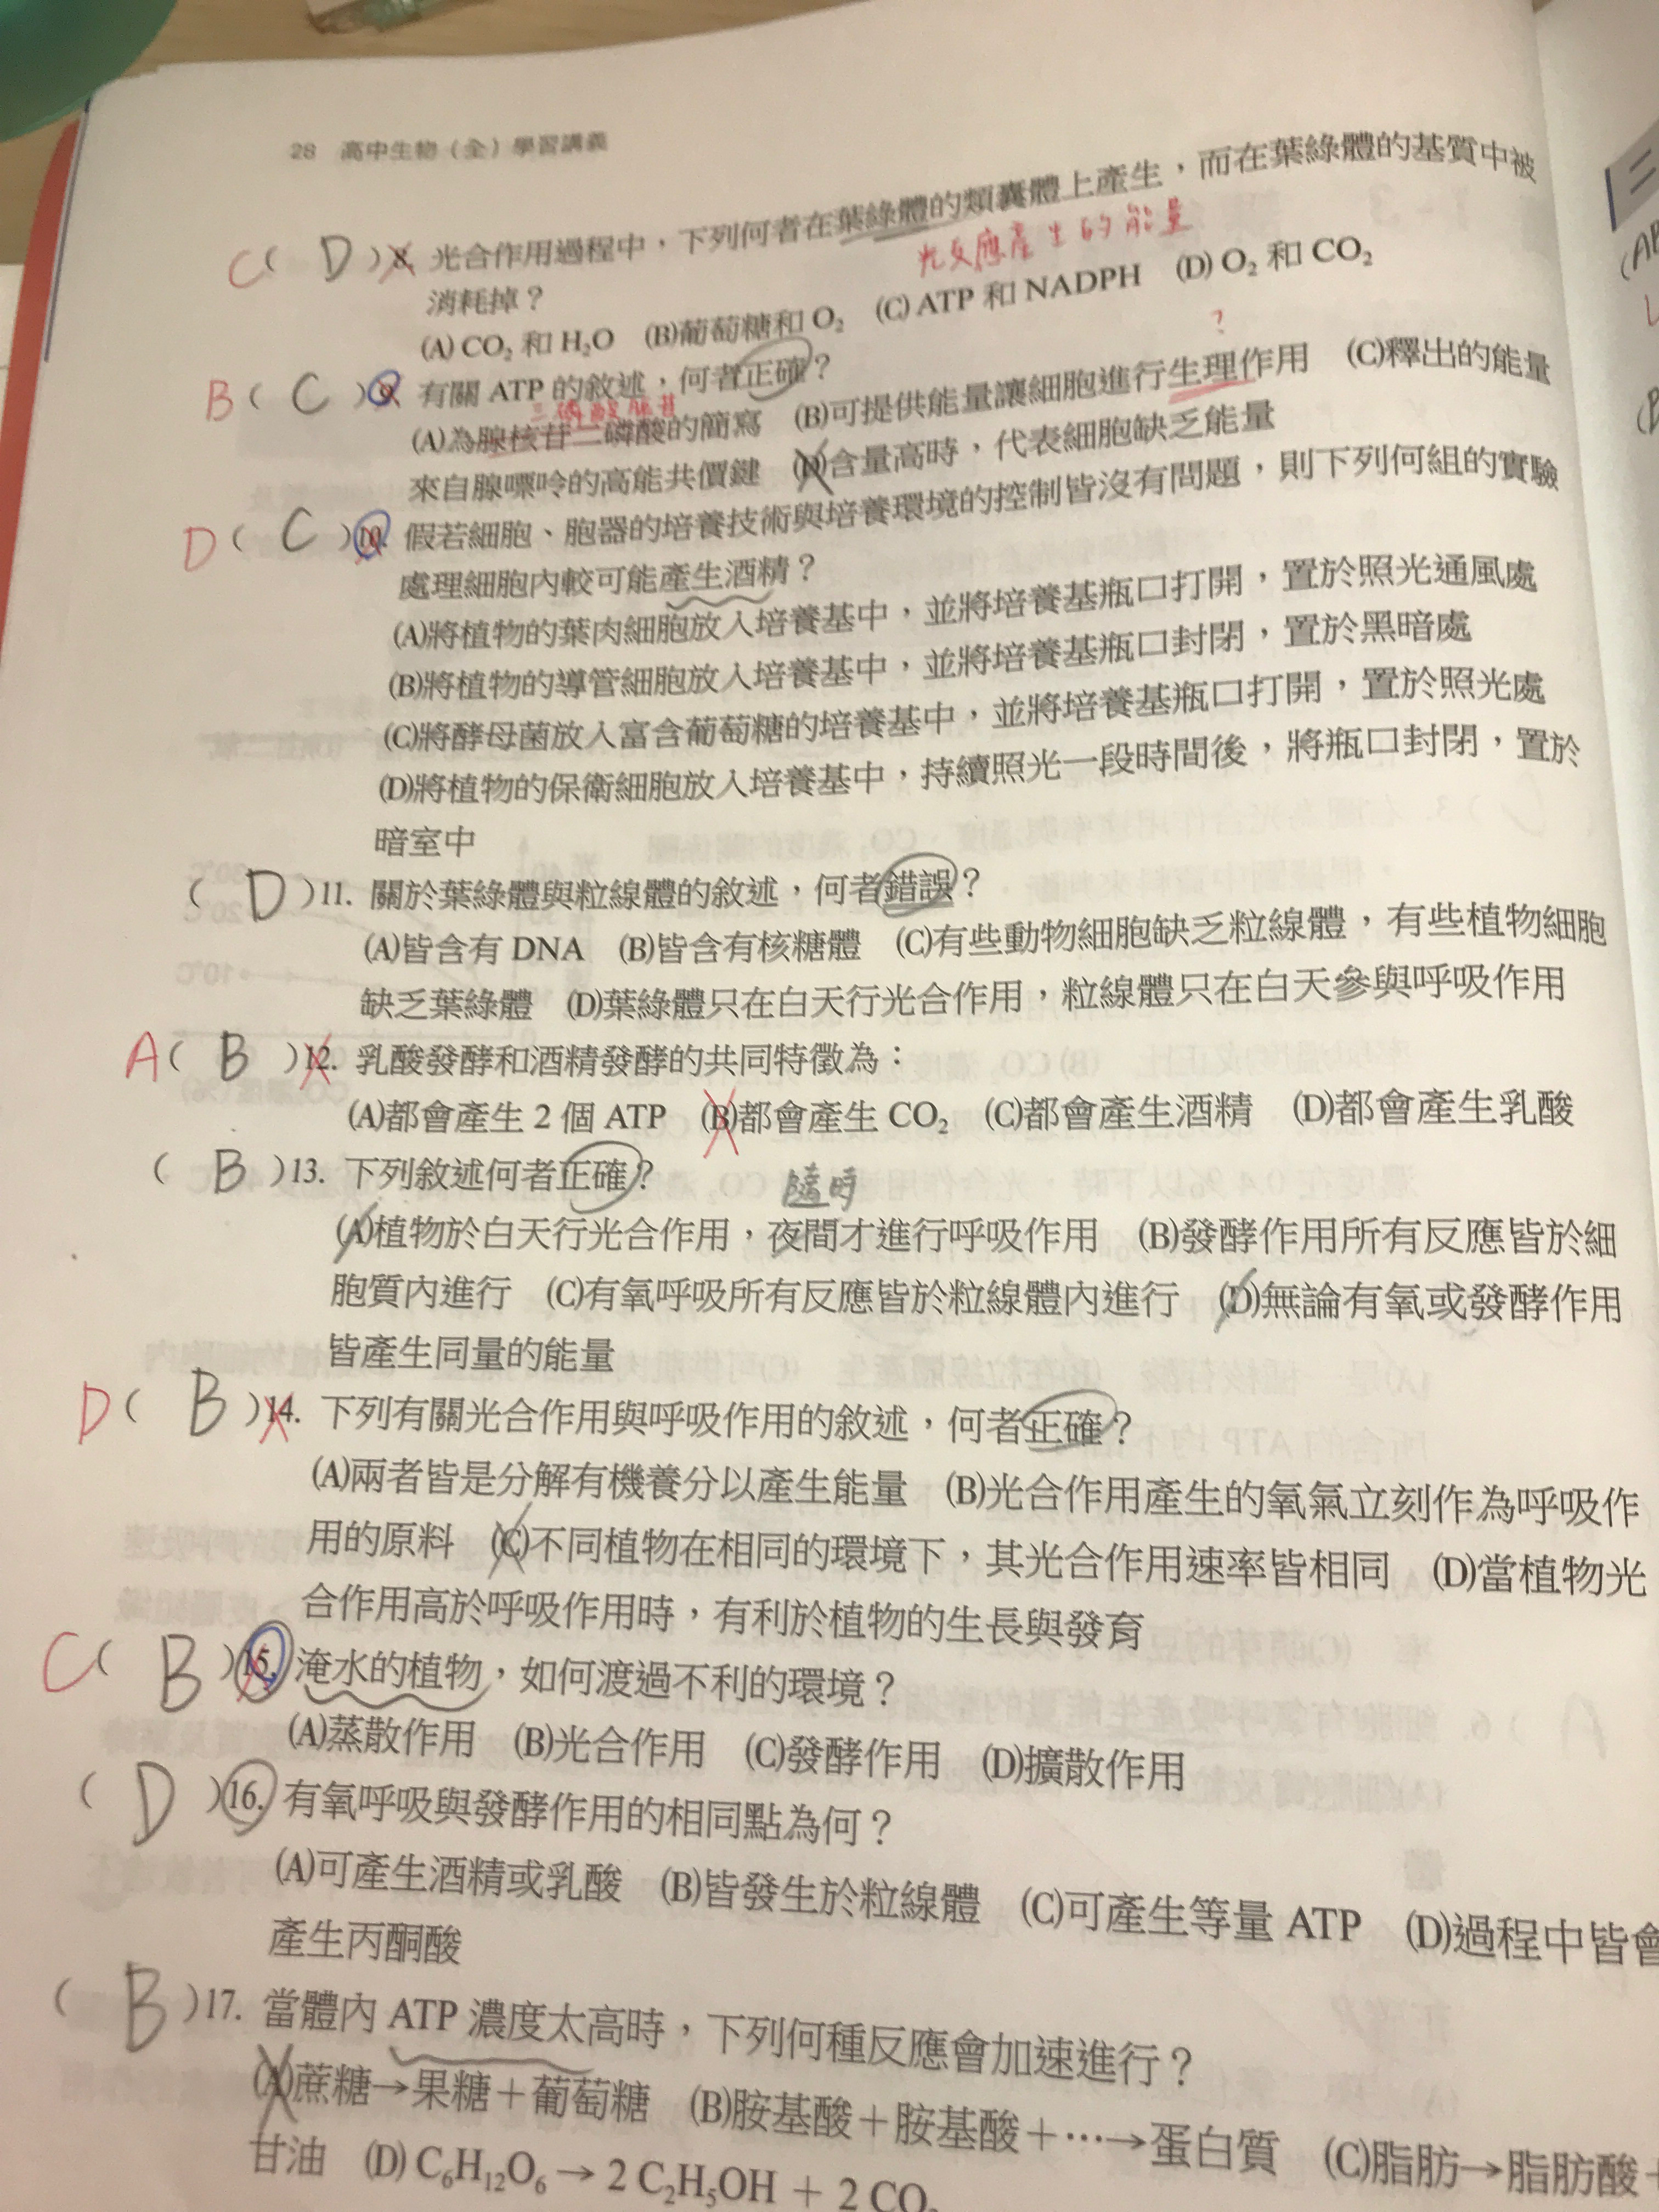 28 高中生物（全）學習講義
C( D )8. 光合作用過程中，下列何者在葉綠體的類囊體上產生，而在葉綠體的基質中被
光反應產生的能量
消耗掉？
(A) CO₂ 和 H₂O (B)葡萄糖和 O₂ (C) ATP 和 NADPH (D) O₂ 和 CO₂
B( C )9. 有關 ATP 的敘述，何者正確？
?
三磷酸腺苷
(A)為腺核苷二磷酸的簡寫 (B)可提供能量讓細胞進行生理作用 (C)釋出的能量
來自腺嘌呤的高能共價鍵 (D)含量高時，代表細胞缺乏能量
D( C )10. 假若細胞、胞器的培養技術與培養環境的控制皆沒有問題，則下列何組的實驗
處理細胞內較可能產生酒精？
(A)將植物的葉肉細胞放入培養基中，並將培養基瓶口打開，置於照光通風處
(B)將植物的導管細胞放入培養基中，並將培養基瓶口封閉，置於黑暗處
(C)將酵母菌放入富含葡萄糖的培養基中，並將培養基瓶口打開，置於照光處
(D)將植物的保衛細胞放入培養基中，持續照光一段時間後，將瓶口封閉，置於
暗室中
( D )11. 關於葉綠體與粒線體的敘述，何者錯誤？
(A)皆含有 DNA (B)皆含有核糖體 (C)有些動物細胞缺乏粒線體，有些植物細胞
缺乏葉綠體 (D)葉綠體只在白天行光合作用，粒線體只在白天參與呼吸作用
A( B )12. 乳酸發酵和酒精發酵的共同特徵為：
(A)都會產生 2 個 ATP (B)都會產生 CO₂ (C)都會產生酒精 (D)都會產生乳酸
( B )13. 下列敘述何者正確？
隨時
(A)植物於白天行光合作用，夜間才進行呼吸作用 (B)發酵作用所有反應皆於細
胞質內進行 (C)有氧呼吸所有反應皆於粒線體內進行 (D)無論有氧或發酵作用
皆產生同量的能量
D( B )14. 下列有關光合作用與呼吸作用的敘述，何者正確？
(A)兩者皆是分解有機養分以產生能量 (B)光合作用產生的氧氣立刻作為呼吸作
用的原料 (C)不同植物在相同的環境下，其光合作用速率皆相同 (D)當植物光
合作用高於呼吸作用時，有利於植物的生長與發育
C( B )15. 淹水的植物，如何渡過不利的環境？
(A)蒸散作用 (B)光合作用 (C)發酵作用 (D)擴散作用
( D )16. 有氧呼吸與發酵作用的相同點為何？
(A)可產生酒精或乳酸 (B)皆發生於粒線體 (C)可產生等量 ATP (D)過程中皆會
產生丙酮酸
( B )17. 當體內 ATP 濃度太高時，下列何種反應會加速進行？
(A)蔗糖→果糖＋葡萄糖 (B)胺基酸＋胺基酸＋…→蛋白質 (C)脂肪→脂肪酸＋
甘油 (D) C₆H₁₂O₆ → 2 C₂H₅OH + 2 CO₂